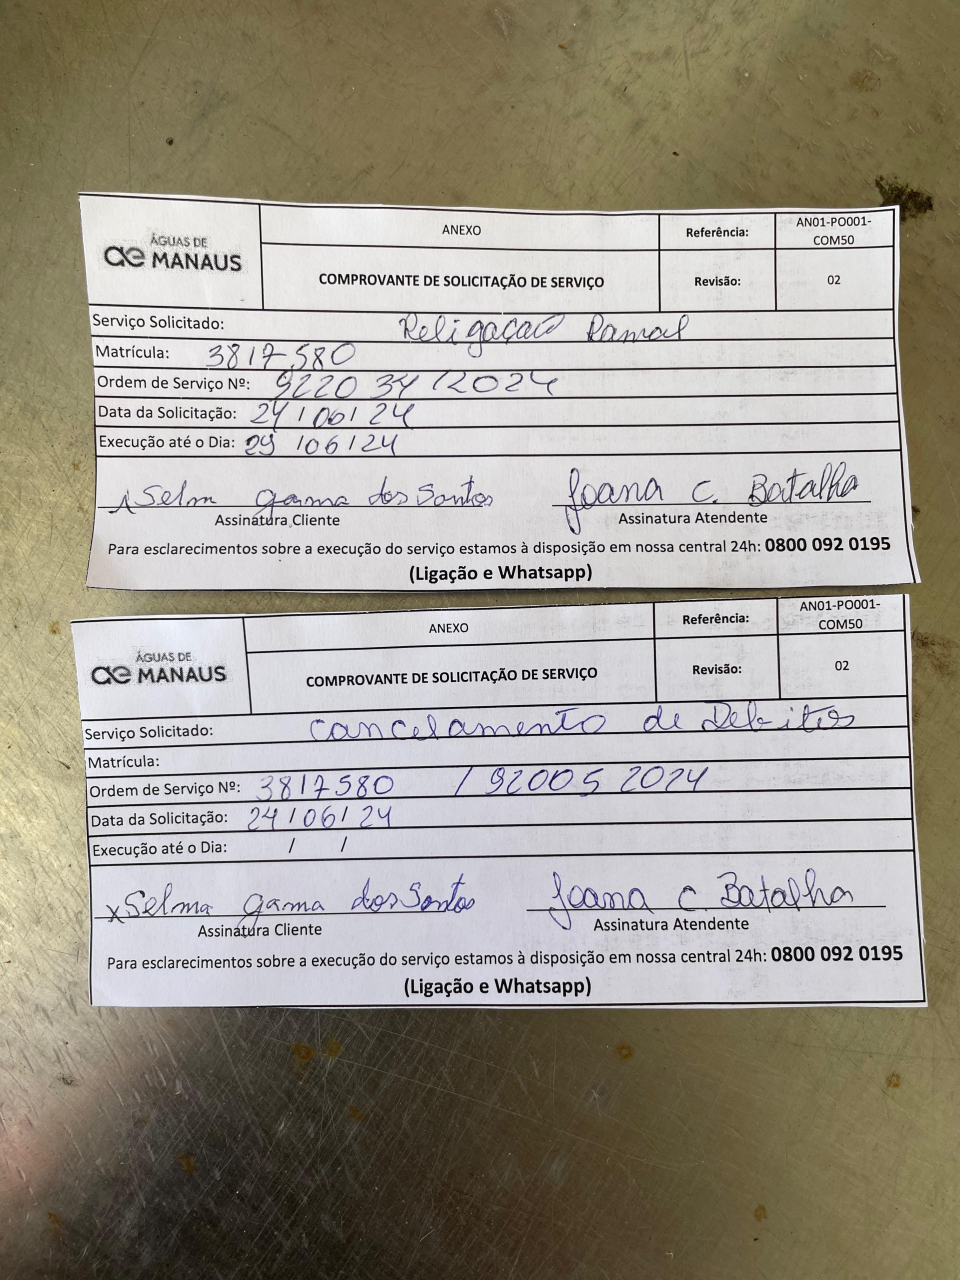 ÁGUAS DE
MANAUS
ANEXO
Referência:
AN01-PO001-
COM50
COMPROVANTE DE SOLICITAÇÃO DE SERVIÇO
Revisão:
02
Serviço Solicitado: Religação Ramal
Matrícula: 3817580
Ordem de Serviço Nº: 922034/2024
Data da Solicitação: 24/06/24
Execução até o Dia: 29/06/24
x Selm gama dos Santos Joana C. Batalha
Assinatura Cliente Assinatura Atendente
Para esclarecimentos sobre a execução do serviço estamos à disposição em nossa central 24h: 0800 092 0195
(Ligação e Whatsapp)
ÁGUAS DE
MANAUS
ANEXO
Referência:
AN01-PO001-
COM50
COMPROVANTE DE SOLICITAÇÃO DE SERVIÇO
Revisão:
02
Serviço Solicitado: Cancelamento de Debitos
Matrícula:
Ordem de Serviço Nº: 3817580 / 92005 2024
Data da Solicitação: 24/06/24
Execução até o Dia: / /
x Selma gama dos Santos Joana C. Batalha
Assinatura Cliente Assinatura Atendente
Para esclarecimentos sobre a execução do serviço estamos à disposição em nossa central 24h: 0800 092 0195
(Ligação e Whatsapp)